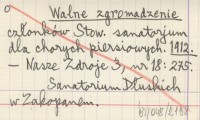 Walne zgromadzenie
członków Stow. sanatorjum
dla chorych piersiowych. 1912.
— Nasze Zdroje 3, nr 18: 275.
Sanatorium Dłuskich
w Zakopanem.